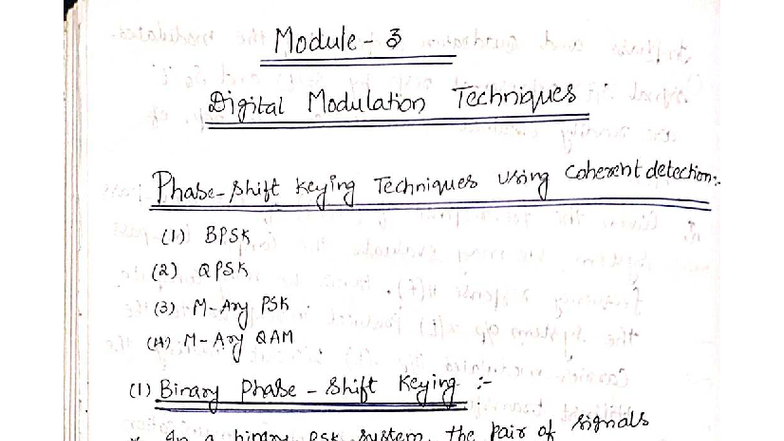 Module - 3
Digital Modulation Techniques :
Phase-Shift Keying Techniques using Coherent detection:-
(1) BPSK
(2) QPSK
(3) M-Ary PSK
(4) M-Ary QAM
(1) Binary Phase - Shift Keying :-
* In a binary PSK system, the pair of signals